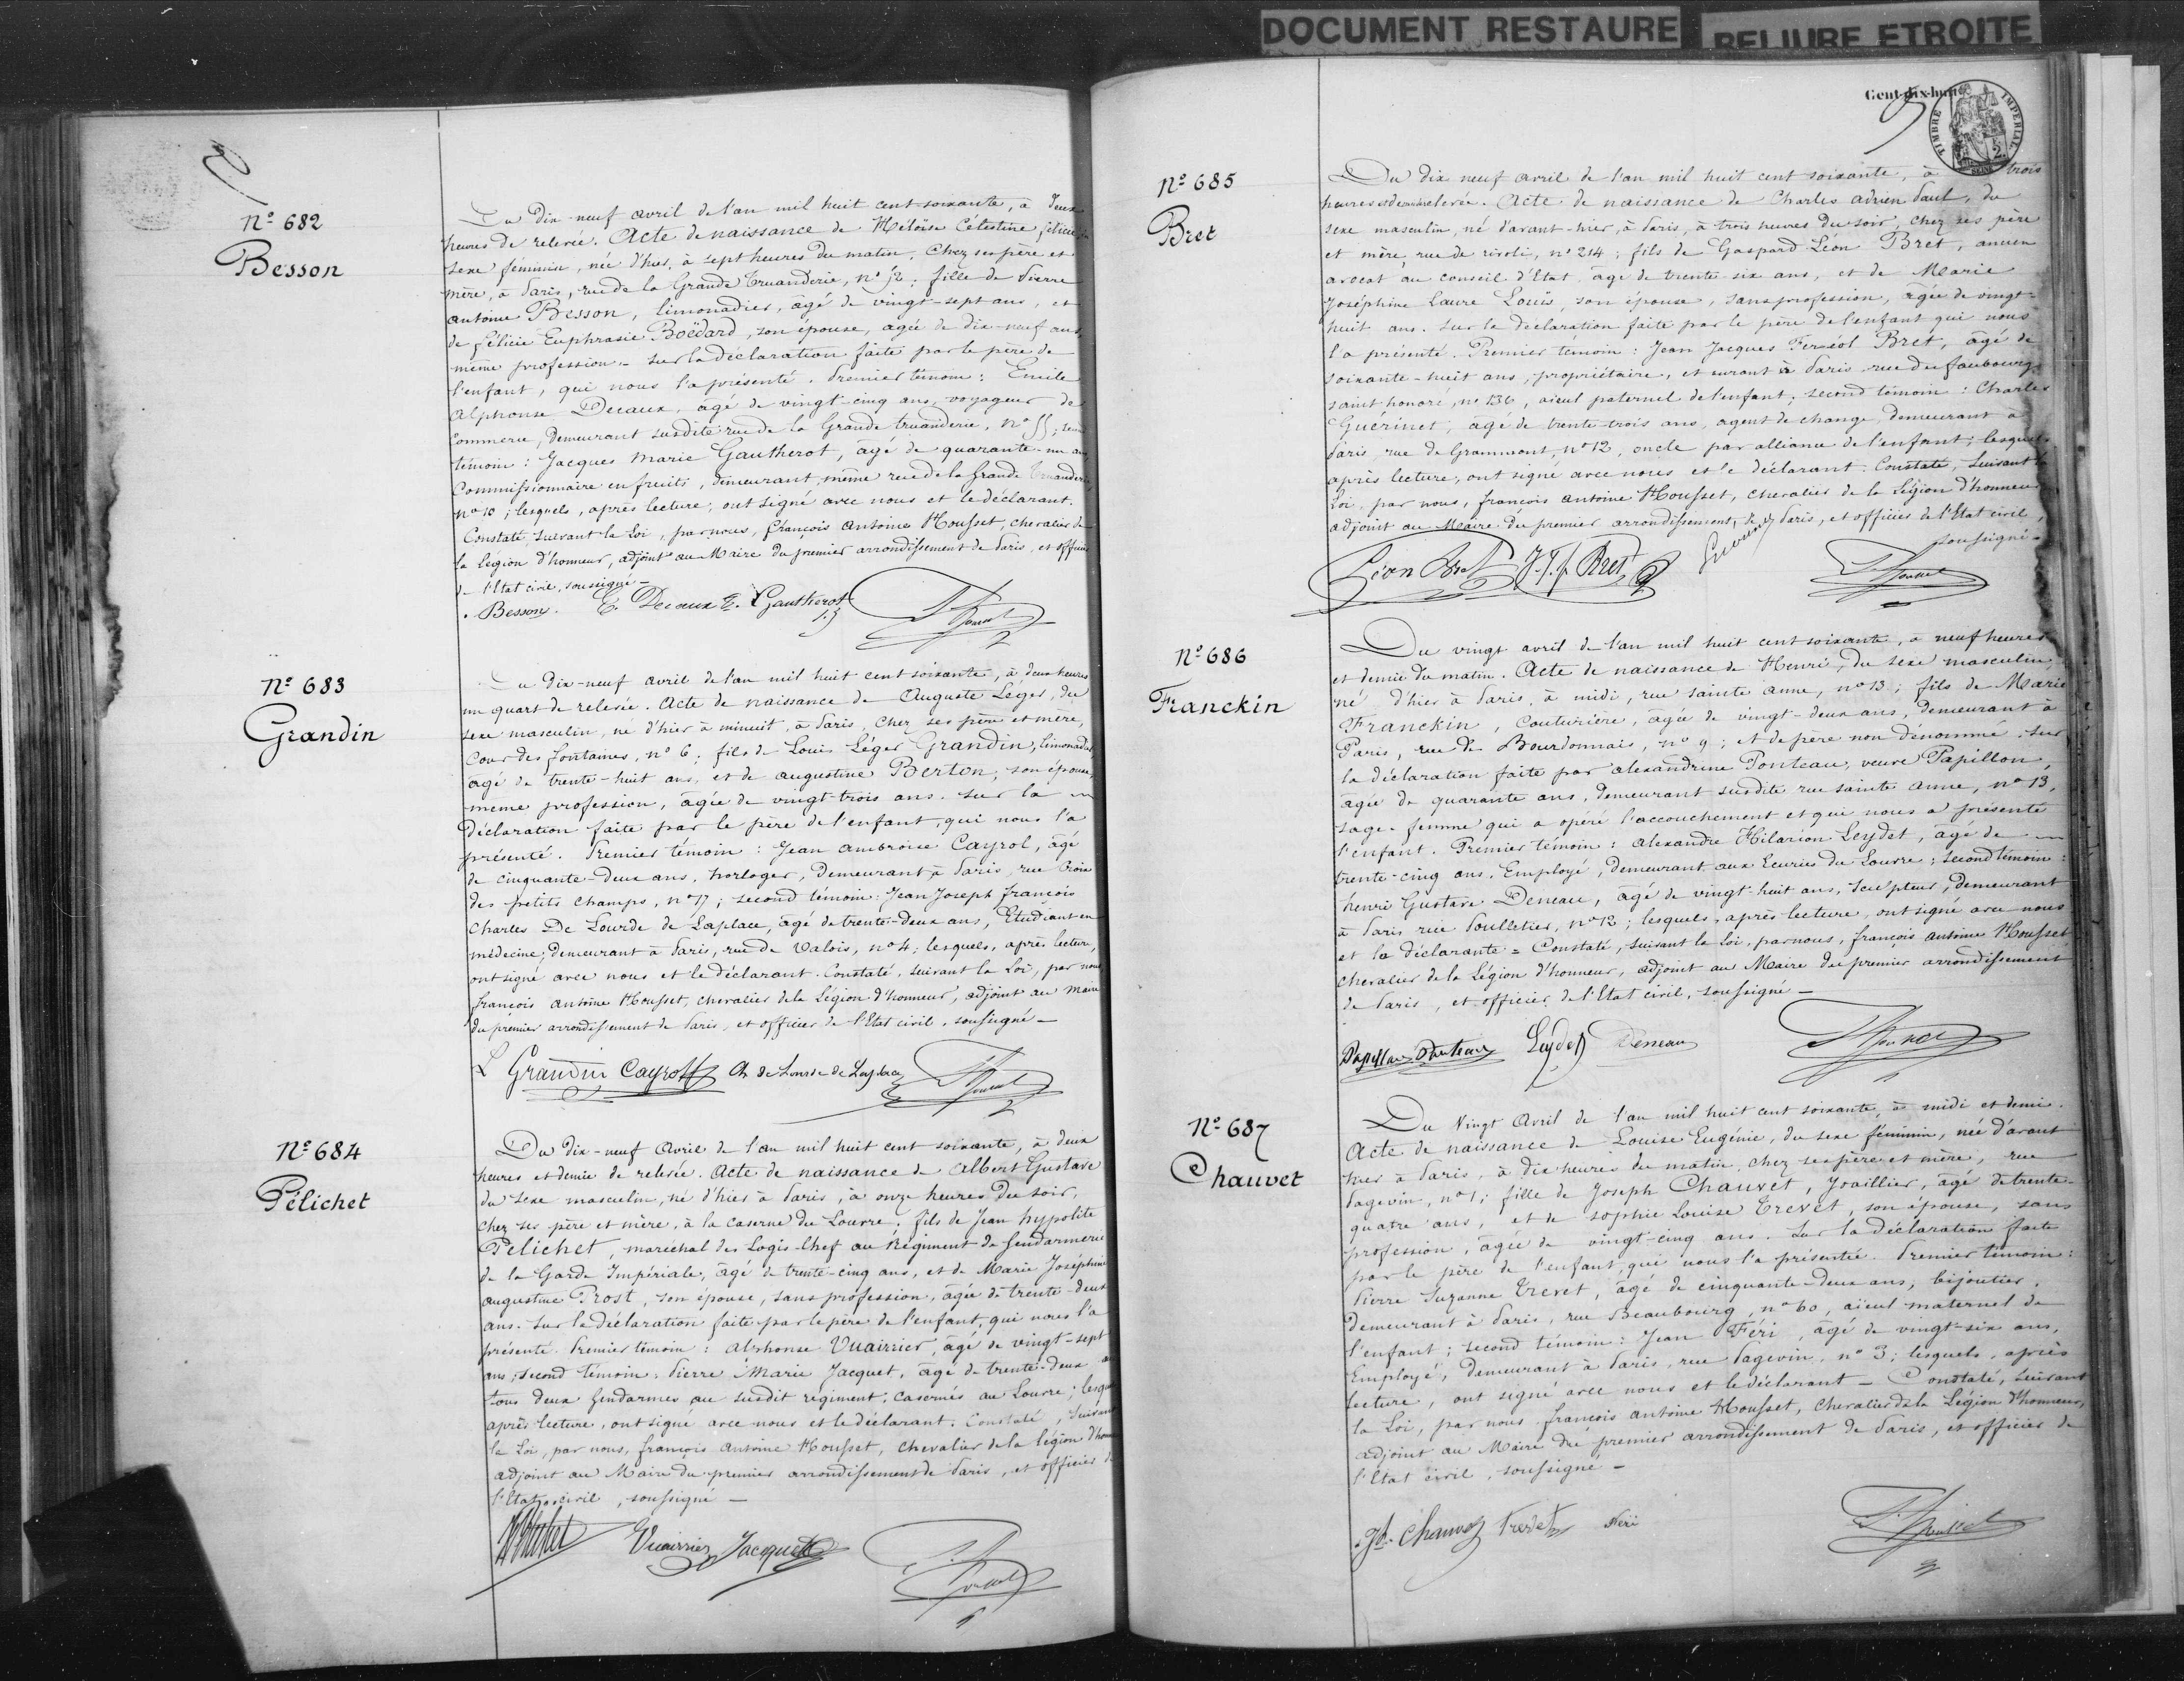 DOCUMENT RESTAURE
RELIURE ETROITE
Nº 682
Besson
Du Dix-neuf avril de l'an mil huit cent soixante, à deux
heures de relevée. Acte de naissance de Héloïse Célestine félicie
sexe féminin, née d'hier, à sept heures du matin, chez ses père et
mère, à Paris, rue de la Grande Truanderie, nº 52; fille de Pierre
antoine Besson, limonadier, âgé de vingt-sept ans, et
de félicie Euphrasie Boëdard, son épouse, agée de dix-neuf ans,
même profession - sur la déclaration faite par le père de
l'enfant, qui nous l'a présenté. Premier témoin: Emile
Alphonse Decaux, âgé de vingt-cinq ans, voyageur de
commerce, demeurant susdite rue de la Grande truanderie, nº 55;
témoin: Jacques Marie Gautherot, âgé de quarante-un ans
Commissionnaire en fruits, demeurant même rue de la Grande Truanderie
nº 10; lesquels, après lecture, ont signé avec nous et le déclarant.
Constaté, suivant la Loi, par nous, françois antoine Housset, chevalier de
la légion d'honneur, adjoint au Maire du premier arrondissement de Paris, et officier
de l'Etat civil, soussigné -
Besson. E. Decaux Gautherot
Nº 683
Grandin
Du Dix-neuf avril de l'an mil huit cent soixante, à deux heures
un quart de relevée. Acte de naissance de Auguste Léger, du
sexe masculin, né d'hier à minuit, à Paris, chez ses père et mère,
Cour des fontaines, nº 6; fils de Louis Léger Grandin, limonadier
âgé de trente-huit ans, et de augustine Berton, son épouse,
même profession, âgée de vingt-trois ans. sur la
Déclaration faite par le père de l'enfant, qui nous l'a
présenté. Premier témoin: Jean ambroise Cayrol, âgé
de cinquante-deux ans, horloger, demeurant à Paris, rue Croix
des petits champs, nº 17; second témoin: Jean Joseph françois
Charles De Lourde de Laplace, âgé de trente-deux ans, Etudiant en
médecine, demeurant à Paris, rue de Valois, nº 4; lesquels, après lecture,
ont signé avec nous et le déclarant. Constaté, suivant la Loi, par nous
françois antoine Housset, chevalier de la Légion d'honneur, adjoint au Maire
du premier arrondissement de Paris, et officier de l'Etat civil, soussigné -
L Grandin Cayrol Ch de Lourde de Laplace
Nº 684
Pélichet
Du dix-neuf Avril de l'an mil huit cent soixante, à deux
heures et demie de relevée. Acte de naissance de Albert Gustave
du sexe masculin, né d'hier à Paris, à onze heures du soir,
chez ses père et mère, à la caserne du Louvre; fils de Jean hypolite
Pelichet, maréchal des Logis-Chef au Régiment de Gendarmerie
de la Garde Impériale, âgé de trente-cinq ans, et de Marie Joséphine
augustine Prost, son épouse, sans profession, âgée de trente-deux
ans. Sur la déclaration faite par le père de l'enfant, qui nous l'a
présenté. Premier témoin: alphonse Vuairrier, âgé de vingt-sept
ans; second témoin: Pierre Marie Jacquet, âgé de trente-deux ans
tous deux Gendarmes au susdit régiment, casernés au Louvre;
après lecture, ont signé avec nous et le déclarant. Constaté, suivant
la Loi, par nous, françois antoine Housset, chevalier de la légion d'honneur
adjoint au Maire du premier arrondissement de Paris, et officier de
l'Etat civil, soussigné -
Pelichet Vuairrier Jacquet
Cent-dix-huit
TIMBRE IMPERIAL
Nº 685
Bret
Du dix neuf avril de l'an mil huit cent soixante, à trois
heures et demie de relevée. Acte de naissance de Charles adrien Paul, du
sexe masculin, né d'avant-hier, à Paris, à trois heures du soir, chez ses père
et mère, rue de rivoli, nº 214; fils de Gaspard Léon Bret, ancien
avocat au conseil d'Etat, âgé de trente six ans, et de Marie
Joséphine Laure Louis, son épouse, sans profession, âgée de vingt-
huit ans. Sur la déclaration faite par le père de l'enfant qui nous
l'a présenté. Premier témoin: Jean Jacques Ferréol Bret, âgé de
soixante-huit ans, propriétaire, demeurant à Paris rue du faubourg
saint honoré, nº 136, aïeul paternel de l'enfant; second témoin: Charles
Guérinet, âgé de trente-trois ans, agent de change, demeurant à
Paris, rue de Grammont, nº 12, oncle par alliance de l'enfant; lesquels,
après lecture, ont signé avec nous et le déclarant. Constaté, suivant la
Loi, par nous, françois antoine Housset, chevalier de la Légion d'honneur
adjoint au Maire du premier arrondissement de Paris, et officier de l'Etat civil,
soussigné -
Léon Bret J. J. f. Bret
Nº 686
Franckin
Du vingt avril de l'an mil huit cent soixante, à neuf heures
et demie du matin. Acte de naissance de Henri, du sexe masculin,
né d'hier à Paris, à midi, rue sainte anne, nº 13; fils de Marie
Franckin, Couturière, âgée de vingt-deux ans, demeurant à
Paris, rue des Bourdonnais, nº 9; et de père non dénommé. sur
la déclaration faite par alexandrine Ponteau, veuve Papillon,
âgée de quarante ans, demeurant susdite rue sainte anne, nº 13,
sage-femme qui a opéré l'accouchement et qui nous a présenté
l'enfant. Premier témoin: alexandre Hilarion Leydet, âgé de
trente-cinq ans, Employé, demeurant aux Ecuries du Louvre; second témoin:
henri Gustave Deneau, âgé de vingt-huit ans, sculpteur, demeurant
à Paris rue Poulletier, nº 12; lesquels, après lecture, ont signé avec nous
et la déclarante = Constaté, suivant la Loi, par nous, françois antoine Housset
chevalier de la Légion d'honneur, adjoint au Maire du premier arrondissement
de Paris, et officier de l'Etat civil, soussigné -
Leydet Deneau
Nº 687
Chauvet
Du Vingt Avril de l'an mil huit cent soixante, à midi et demi.
Acte de naissance de Louise Eugénie, du sexe féminin, née d'avant
hier à Paris, à dix heures du matin, chez ses père et mère, rue
Pagevin, nº 1; fille de Joseph Chauvet, Joaillier, âgé de trente-
quatre ans, et de sophie Louise Trevet, son épouse, sans
profession, âgée de vingt-cinq ans. Sur la déclaration faite
par le père de l'enfant, qui nous l'a présentée. Premier témoin:
Pierre Suzanne Trevet, âgé de cinquante-deux ans, bijoutier,
demeurant à Paris, rue Beaubourg, nº 60, aïeul maternel de
l'enfant; second témoin: Jean Féri, âgé de vingt-six ans,
Employé, demeurant à Paris, rue Pagevin, nº 3; lesquels, après
lecture, ont signé avec nous et le déclarant - Constaté, suivant
la Loi, par nous françois antoine Housset, Chevalier de la Légion d'honneur,
adjoint au Maire du premier arrondissement de Paris, et officier de
l'Etat civil, soussigné -
Jh. Chauvet Trevet Féri